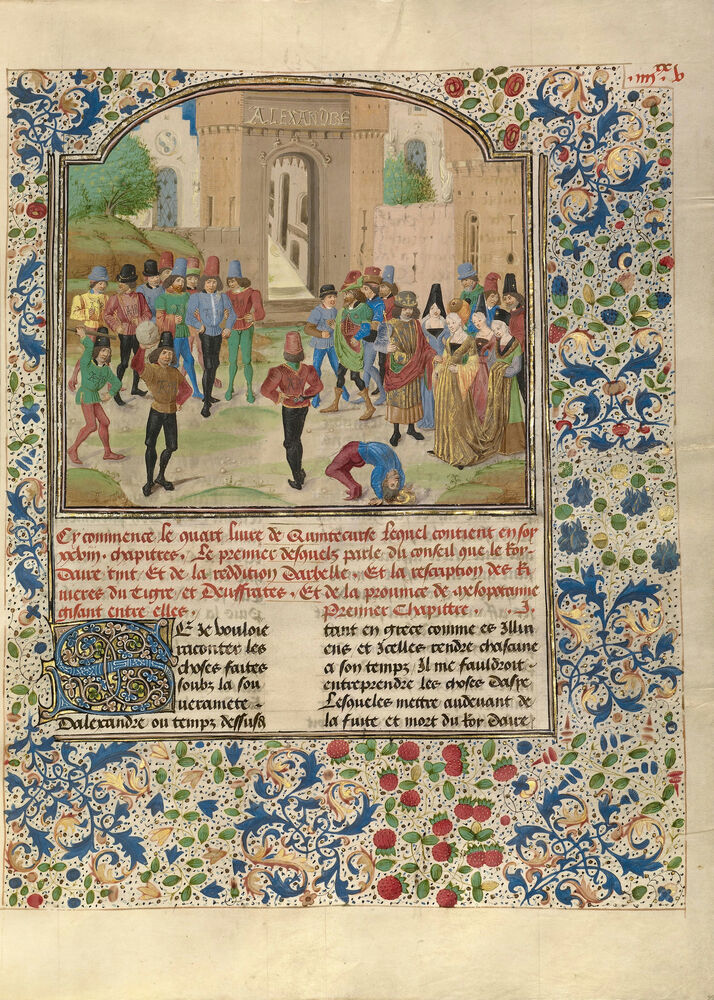 .iiii.xx v
ALEXANDRE
Cy commence le quart livre de Quintecurse lequel contient en soy
xxviii. chapittres. Le premier desquelz parle du conseil que le Roy
Daire tint / Et de la reddition Darbelle. Et la rescription des Ri
uieres du Tigre / et Deuffrates. Et de la prouince de mesopotamie
gisant entre elles. Premier Chapittre. J.
SE Je vouloie
raconter les
choses faites
soubz la sou
uerainete
Dalexandre ou temps dessusd
tant en grece comme es Illiri
ens et Icelles rendre chascune
a son temps Il me fauldroit
entreprendre les choses Dasye
Lesqueles mettre audeuant de
la fuite et mort du Roy Daire